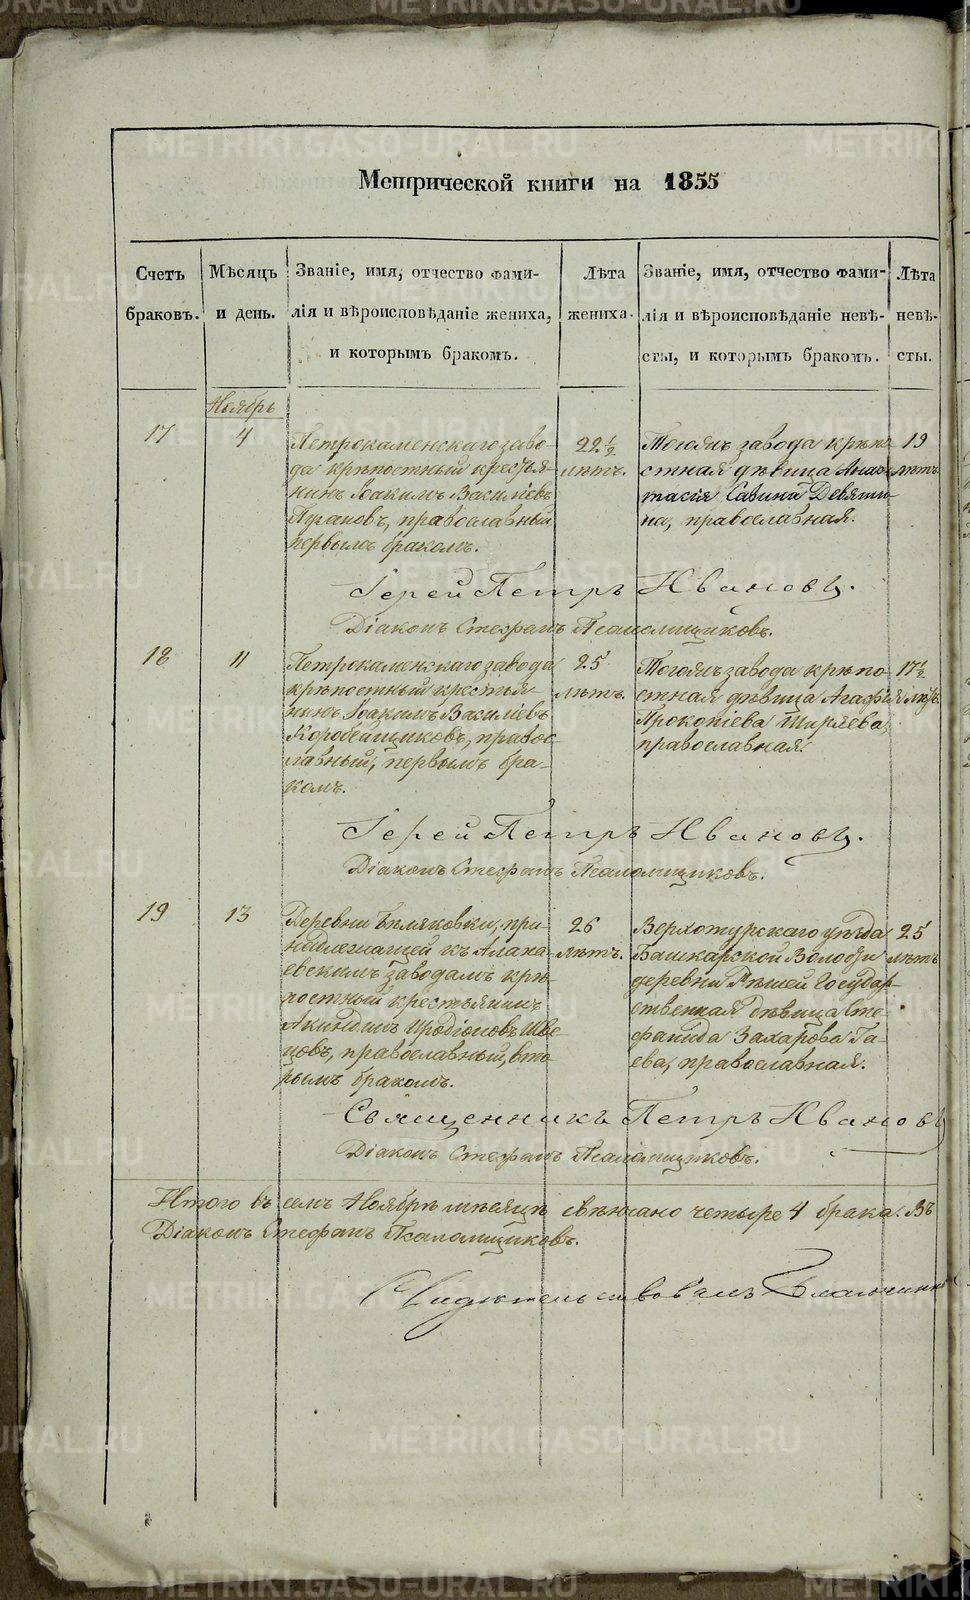 Метрической книги на 1855
Счетъ браковъ.
Мѣсяцъ и день.
Званіе, имя, отчество фами-
лія и вѣроисповѣданіе жениха,
и которымъ бракомъ.
Лѣта
жениха.
Званіе, имя, отчество фами-
лія и вѣроисповѣданіе невѣ-
сты, и которымъ бракомъ.
Лѣта
невѣ-
сты.
Ноябрь
17
4
Петрокаменскаго заво-
да крѣпостный крестья-
нинъ Іоакимъ Василіевъ
православный
первымъ бракомъ.
22 ½
лѣтъ.
Тогожъ завода крѣпо-
стная дѣвица Анас-
тасія Савина Девяти-
на, православная.
19
лѣтъ
Іерей Петръ Ивановъ.
Діаконъ Стефанъ Псаломщиковъ.
18
11
Петрокаменскаго завода
крѣпостный крестья-
нинъ Іоакимъ Василіевъ
Коробейщиковъ, правос-
лавный, первымъ бра-
комъ.
25
лѣтъ.
Тогожъ завода крѣпо-
стная дѣвица Агафія
Прокопіева Ширяева,
православная
17 ½
лѣтъ
Іерей Петръ Ивановъ.
Діаконъ Стефанъ Псаломщиковъ.
19
13
Деревни Бѣляковки, при-
надлежащей къ Алапа-
евскимъ заводамъ крѣ-
постный крестьянинъ
Акиндинъ Иродіоновъ Шве-
цовъ, православный, вто-
рымъ бракомъ.
26
лѣтъ.
Верхотурскаго уѣзда
Башкарской Волости
деревни Рѣшей Государ-
ственная дѣвица Сте-
фанида Захарова Га-
ева, православная.
25
лѣтъ
Священникъ Петръ Ивановъ
Діаконъ Стефанъ Псаломщиковъ.
Итого въ семъ Ноябрѣ мѣсяцѣ свѣнчано четыре 4 брака. Въ
Діаконъ Стефанъ Псаломщиковъ.
Свидѣтельствовалъ Благочинный
METRIKI.GASO-URAL.RU